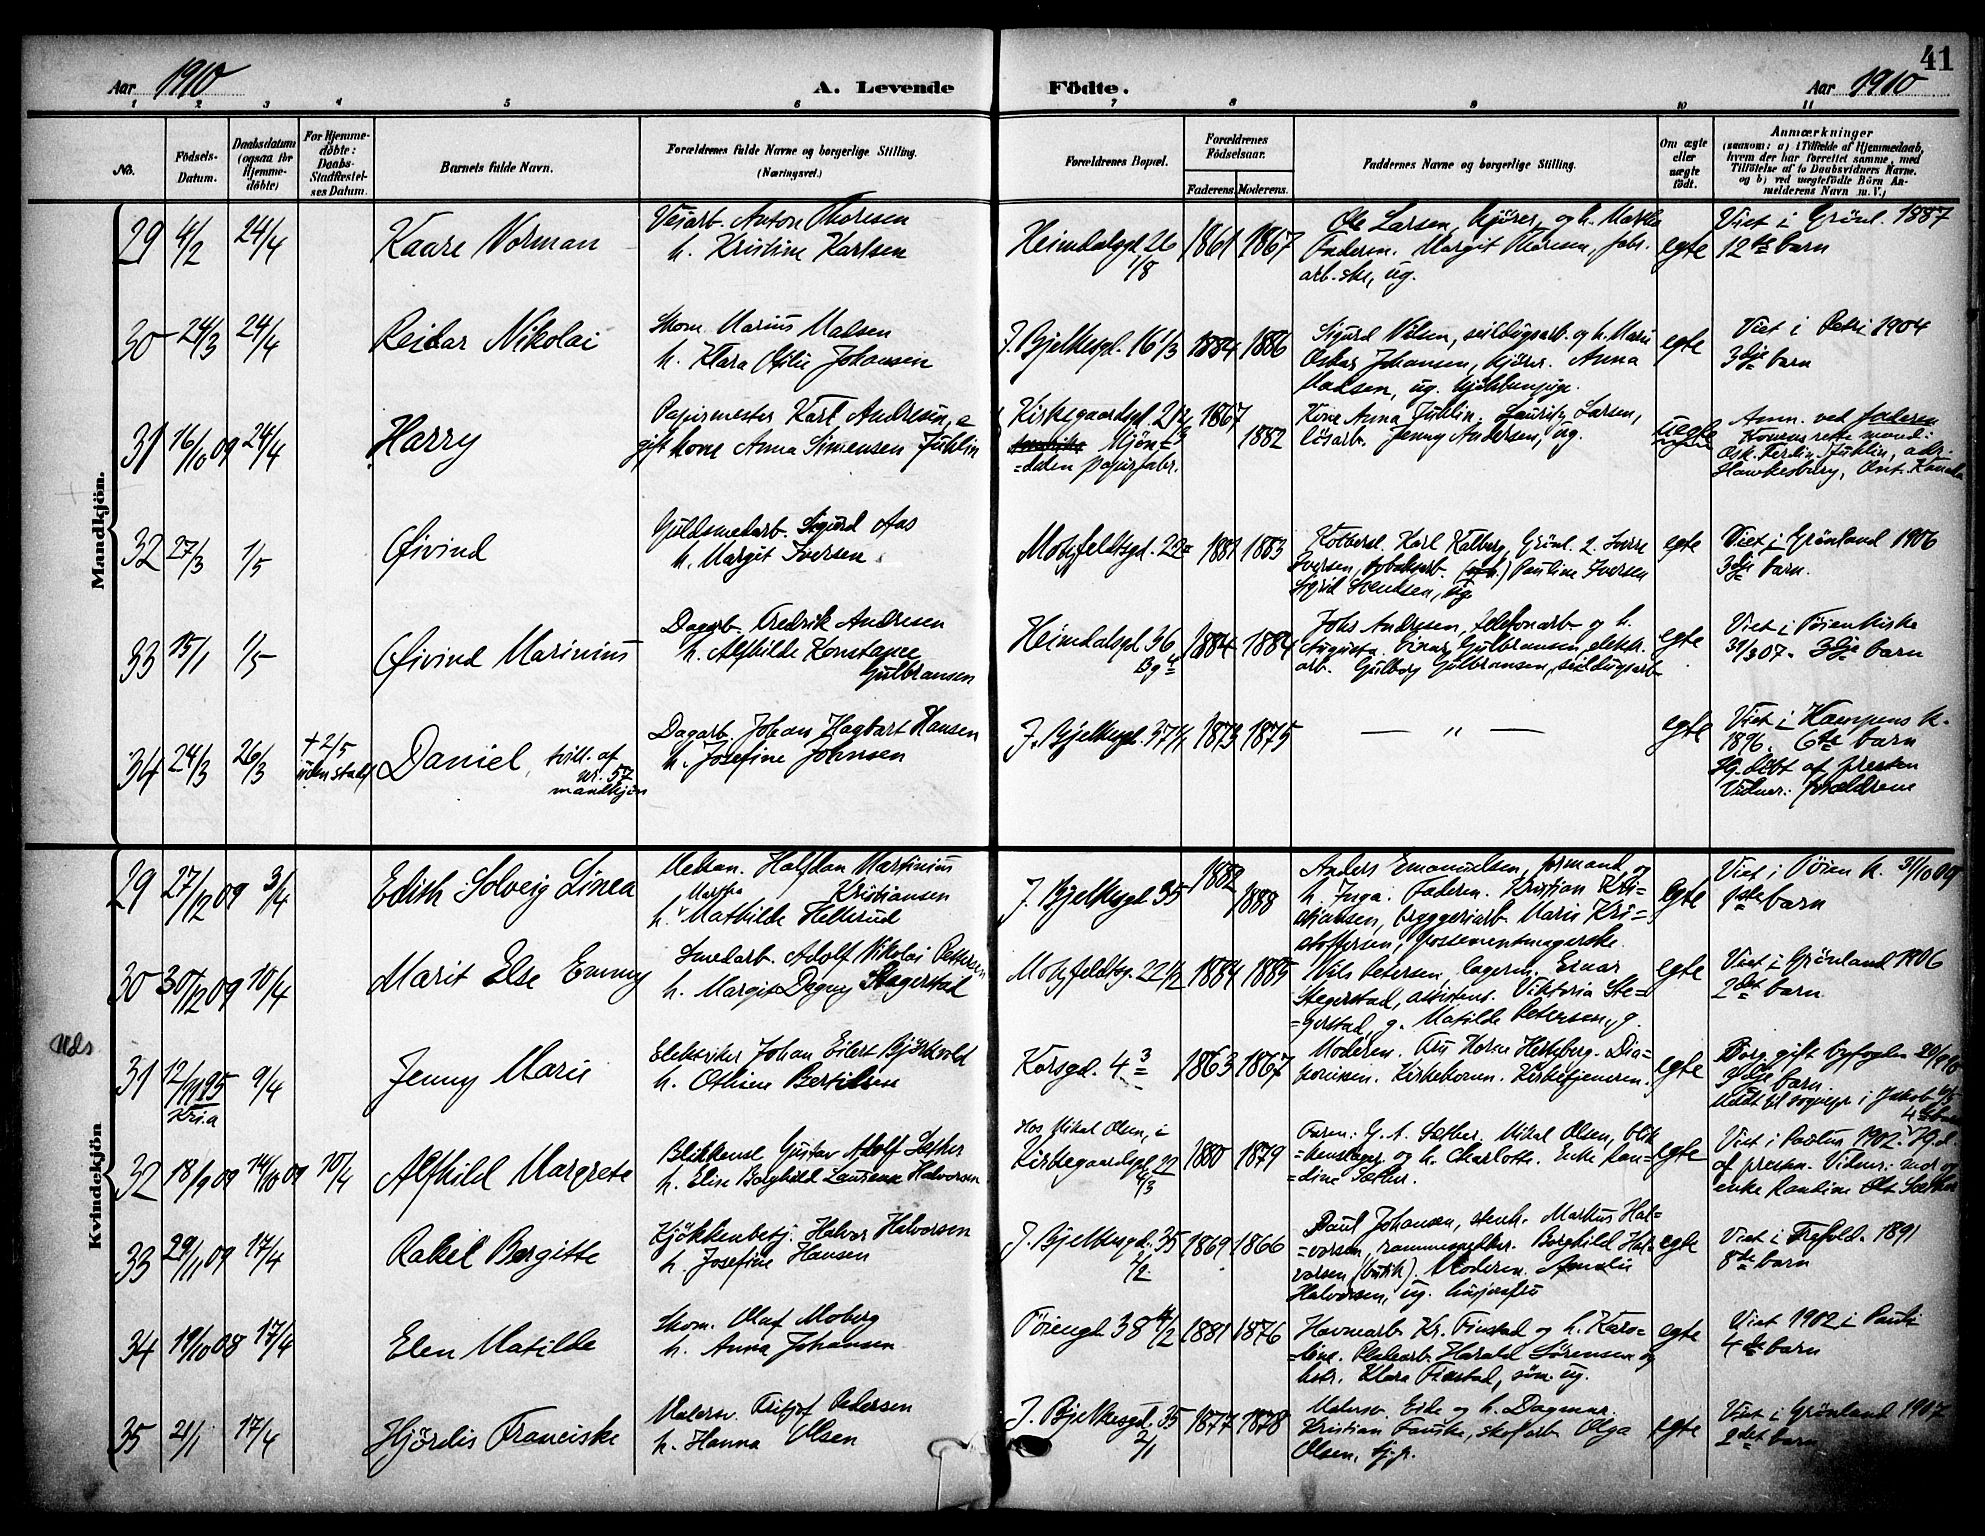 41
Aar 1910
A. Levende
Födte.
Aar 1910
1 2 3 4 5 6 7 8 9 10 11
No.
Födsels-
Datum.
Daabsdatum
(ogsaa for
Hjemme-
döbte)
For Hjemme-
döbte:
Daabs-
Stadfæstel-
ses Datum.
Barnets fulde Navn.
Forældrenes fulde Navne og borgerlige Stilling.
(Næringsvei.)
Forældrenes Bopæl.
Forældrenes
Födselsaar.
Faderens. Moderens.
Faddernes Navne og borgerlige Stilling.
Om ægte
eller
uægte
födt.
Anmærkninger
(saasom: a) i Tilfælde af Hjemmedaab,
hvem der har forrettet samme, med
Tilföielse af to Daabsvidners Navne,
og b) ved uægtefödte Börn An-
melderens Navn m. V.)
Mandkjön.
29 4/2 24/4 Kaare Norman
Veiarb. Anton Thoresen
h. Kristine Karlsen
Heimdalsgd. 26
1/8
1861 1867
Ole Larsen, kjörer, og h. Marthe
Faderen. Margit Thoresen, fabr.
arb.ske, ug.
egte
Viet i Grönl. 1887
12te barn
30 24/3 24/4 Reidar Nikolai
Skom. Marius Madsen
h. Klara Otilie Johansen
J. Bjelkesgd. 16 1/3 1884 1886
Sigurd Nilsen, seildugsarb. og h. Marie
Oskar Johansen, kjörer. Anna
Madsen, ug. kjökkenpige.
egte
Viet i Petri 1904
3dje barn
31 16/10 09 24/4 Harry
Papirmester Karl Andresen, e
gift kone Anna Simensen Juhlin
Kirkegaardsgd.
Mjön-
=dalen papirfabr.
1867
1882
Kone Anna Juhlin. Lauritz Larsen,
lösarb. Jenny Andersen, ug.
uegte
Anm. ved faderen
Konens rette mand:
Osk. Ferdin. Juhlin, adr.
Hawkesbury, Ont. Kanada
32 27/3 1/5 Øivind
Guldsmedarb. Sigurd Aas
h. Margit Iversen
Motzfeldtsgd. 1883
Karl Kalberg, Grönl. 2. Sverre
Iversen, Pauline Iversen
Sigrid Svendsen, ug
egte
Viet i Grönland 1906
3dje barn.
33 15/1 1/5 Øivind Marinius
Dagarb. Fredrik Andresen
h. Alfhilde Konstanse
Gulbransen
Heimdalsgd. 36
1884 1884
Johs Andresen, telefonarb og h.
Augusta. Einar Gulbransen, elektr.
arb. Gulborg Gulbransen, seildugsarb
egte
Viet i Töienkirke
31/3 07. 3dje barn
34 24/3 26/3
+ 2/5
uden stadf
Daniel, tvill. af
nr. 57
mandkjön
Dagarb. Johan Hagbart Hansen
h. Josefine Johnsen
J. Bjelkesgd. 37 1873 1875
— „ —
egte
Viet i Kampens k.
1896. 6te barn
Hj.döbt af presten
Vidner: forældrene
Kvindekjön
29 27/12 09 3/4 Edith Solveig Linea
Mekan. Halfdan Martinius
Kristiansen
Martha
h. Mathilde Hellerud
J. Bjelkesgd 35
1882
1888
Anders Emanuelsen, formand og
h. Inga. Faderen. Kristian Kri-
stiansen, bryggeriarb. Marie Kri=
stoffersen, possementmagerske.
egte
Viet i Töien k. 31/10 09
1ste barn
30 30/12 09 10/4 Marit Else Emmy
Smedarb. Adolf Nikolai Pettersen
h. Margit Dagny Stegerstad
Motzfeldtsg. 22 1/2 1884 1885
Nils Petersen, lagerm. Einar
Stegerstad, assistent. Viktoria Ste=
=gerstad, g. Matilde Petersen, g.
egte
Viet i Grönland 1906
2det barn
Uds
31 12/11 1895
Kria
9/4 Jenny Marie
Elektriker Johan Eilert Björkvold
h. Othine Bertilsen
Korsgd. 4 3 1863 1867
Moderen. Frk Horn Hertzberg. Dia=
konissen. Kirkekonen. Kirketjeneren.
egte
Borg. gift byfogden
3dje barn
32 18/9 09 14/10 09 10/4 Alfhild Margrete
Blikkensl Gustav Adolf Sæther
h. Elise Borghild Laurense Halvorsen
Hos Mikal Olsen, i
Kirkegaardsgd. 22
4/3
1880 1879
Faren: G. A. Sæther. Mikal Olsen, blik
kenslager og h. Charlotte. Enke Ran=
=dine Sæther.
egte
Viet i Paulus 1902. Hj.d.
af presten. Vidner: mor og
enke Randine Sæther
33 29/11 09 17/4 Rakel Bergitte
Kjökkenbetj. Halvor Halvorsen
h. Josefine Hansen
J. Bjelkesgd. 35
1/2
1869 1866
Paul Johansen, stenh. Markus Hal=
=vorsen, Borghild Hal=
vorsen (butik). Moderen. Amalie
Halvorsen, ug. husjomfru
egte
Viet i Trefold. 1891
8de barn
34 19/10 08 17/4 Elen Matilde
Skom. Olaf Moberg
h. Anna Johansen
Töiengd 38 1881 1876
Havnearb Kr. Finstad og h. Karo=
=line. Harald Sörensen og
hstr. Klara Finstad, ug.
egte
Viet 1902 i Pauli
4de barn
35 2/1 17/4 Hjördis Franciske
Malersv. Fritjof Pedersen
h. Hanna Olsen
J. Bjelkesgd. 35
2/1
1877 1878
Malersv. Eide og h. Dagmar.
Kristian Fauske, skofarb Olga
Olsen, tj.p.
egte
Viet i Grönland 1907
2det barn